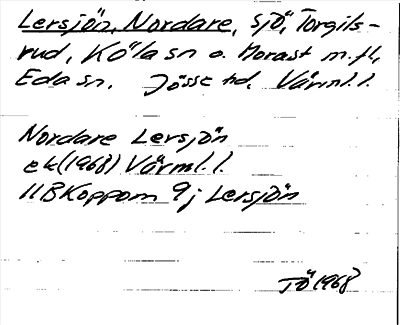 Lersjön, Nordare, sjö, Torgils-
rud, Köla sn o. Morast m.fl,
Eda sn. Jösse hd. Värml.l.
Nordare Lersjön
ek(1968) Värml.l.
11BKoppom 9j Lersjön
TÖ 1968